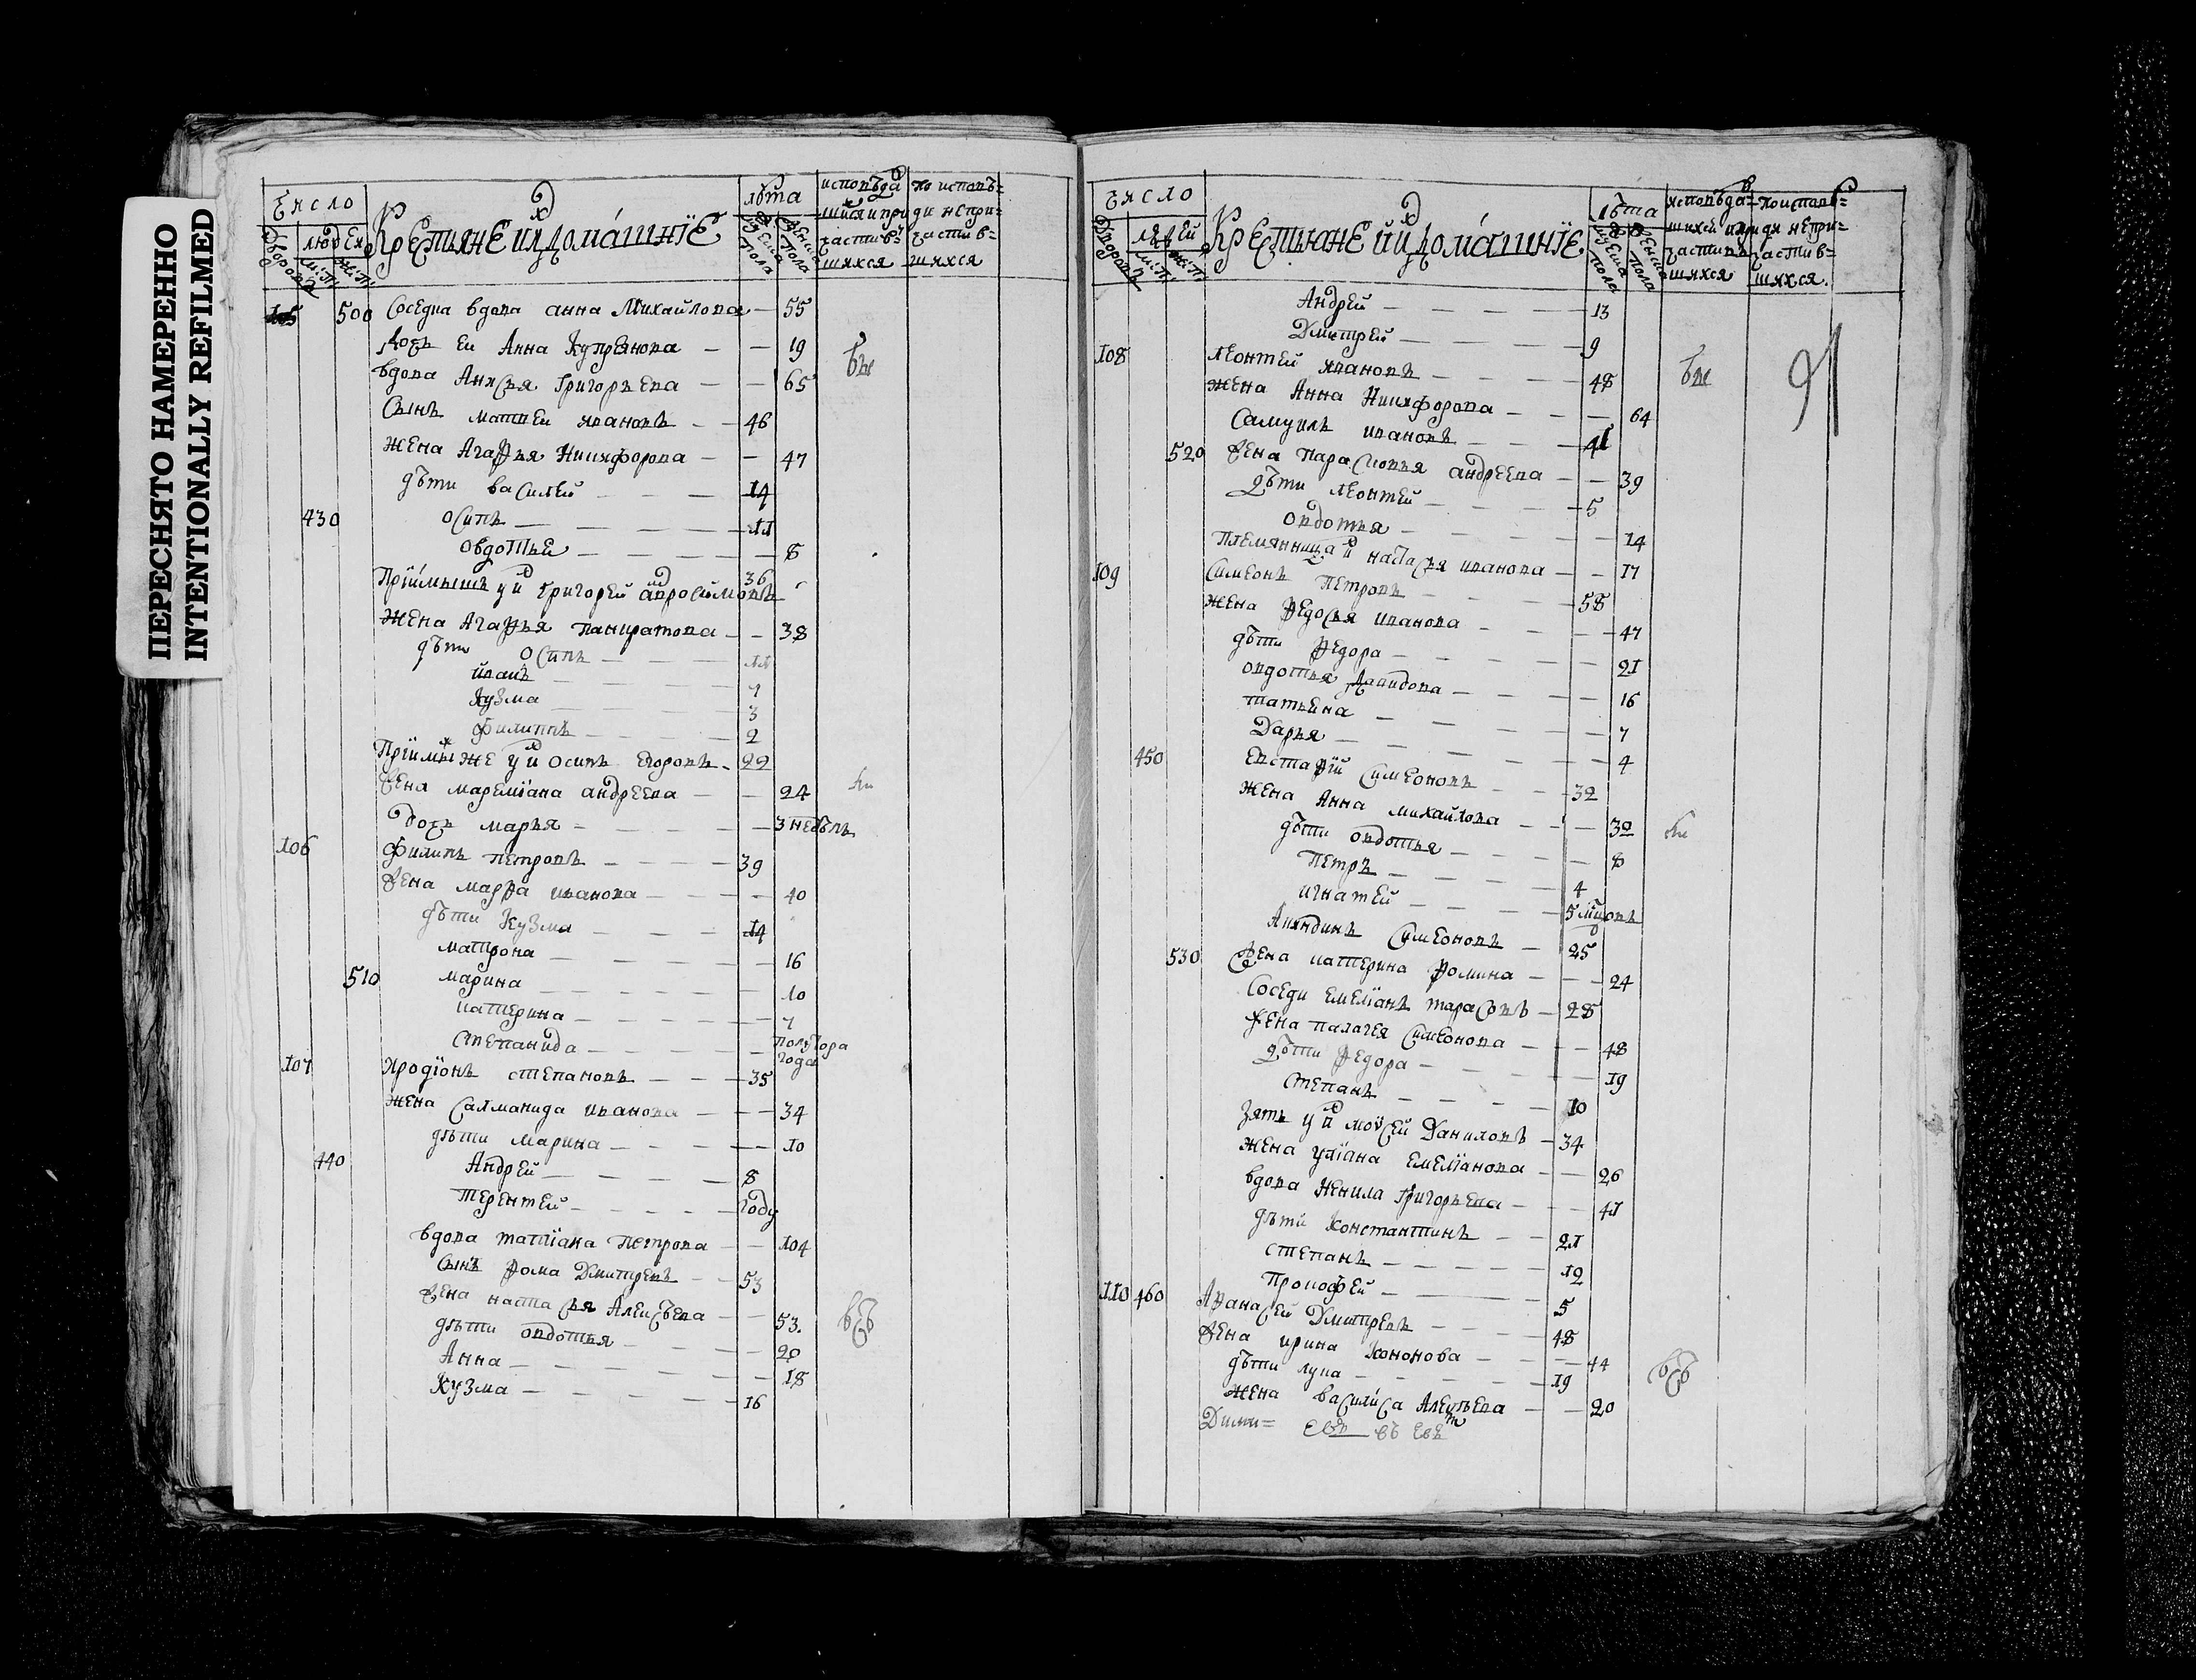 ПЕРЕСНЯТО НАМЕРЕННО
INTENTIONALLY REFILMED
Число
Дворовъ
людей
м: п:
ж: п:
Крестьяне и ихъ домашніе
лѣта
мужеска пола
женска пола
исповѣдав
шийся и при
частив
шихся
по исповѣ=
ди непри=
частив=
шихся
105 500 Соседка вдова анна Михайлова — 55
дочь ей Анна Купреянова — — 19
вдова Анисья Григорьева — — 65
Сынъ матвей ивановъ — — 46
жена Агафья Никифорова — — 47
дѣти василей — — — 14
430 осипъ — — — — 11
овдотьей — — — — 8
Пріимышъ у ни григорей авросимовъ 36
жена Агафья панкратова — — 38
дѣти осипъ — — — 11
иванъ — — — 7
кузма — — — 3
филиппъ — — — 2
Пріимыж же у ни осипъ егоровъ — 22
жена маремiана андреева — — 24
дочь марья — — — — 3 недѣль
106 филипъ петровъ — — — — 39
жена марфа иванова — — — — 40
дѣти кузма — — — 14
матрона — — — — 16
510 марина — — — — 10
катерина — — — — 7
степанида — — — — полутора года
107 иродіонъ степановъ — — — 35
жена саламанида иванова — — — 34
дѣти марина — — — — 10
440 Андрей — — — — 8
терентей — — — — году
вдова татіана петрова — — 104
сынъ фома дмитревъ — — 53
жена настасья алексѣева — — 53
дѣти овдотья — — — — 20
Анна — — — — 18
кузма — — — — 16
Число
Дворовъ
людей
м: п:
ж: п:
Крестьяне и ихъ домашніе
лѣта
мужеска пола
женска пола
исповѣдав=
шихся и при
частивъ
шихся
по исповѣ=
ди непри=
частив=
шихся.
91
Андрей — — — — 13
Дмитрей — — — 9
108 леонтей ивановъ — — — — 48
жена Анна Никифорова — — — 64
самуилъ ивановъ — — — — 41
520 жена парасковья андреева — — 39
дѣти леонтей — — — — 5
овдотья — — — — 14
племянница и настасья иванова — — 17
109 симеонъ петровъ — — — — 58
жена федосья иванова — — — 47
дѣти федора — — — — 21
овдотья давидова — — — 16
татьяна — — — — 7
дарья — — — — 4
450 евстафій симеоновъ — — — 32
жена анна михайлова — — — 30
дѣти овдотья — — — — 8
петръ — — — — 4
игнатей — — — — 5 мцовъ
Акиндинъ симеоновъ — 25
530 жена катерина фомина — — — 24
соседи емеліанъ тарасовъ — 28
жена палагея симеонова — — — 48
дѣти федора — — — — 19
степанъ — — — — 10
зять у ни мойсей даниловъ — 34
жена уліана емеліанова — — — 26
вдова ненила григорьева — — — 41
дѣти константинъ — — 21
степанъ — — — — 12
прокофей — — — — 5
110 460 Афанасей дмитревъ — — — — 48
жена ирина кононова — — — — 44
дѣти лупа — — — — 19
жена василиса алексѣева — — 20